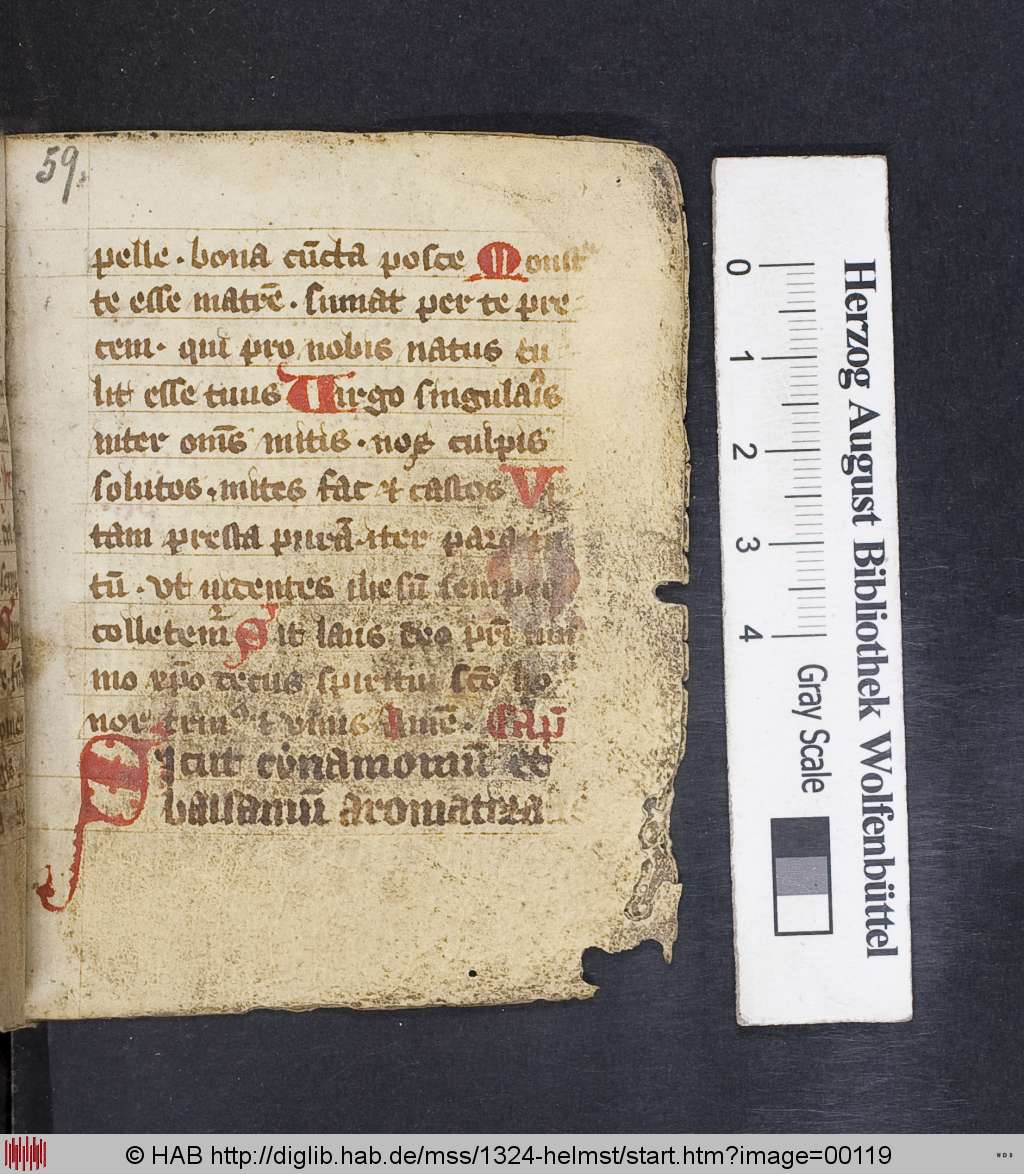 59.
pelle · bona cūcta posce Monst
te esse matrē · sumat per te pre
cem · qui pro nobis natus tu
lit esse tuus Uirgo singulaīs
inter om̄s mitis · nos culpis
solutos · mites fac & castos Vi
tam presta purā · iter para tu
tū · vt uidentes ihesū semper
colletem᷑ Sit laus deo pr̄i sum
mo xp̄o decus spiritui sc̄o ho
nor & vnus Amē · Cap̄
Sicut cynamomū et
balsamū aromatiza
Herzog August Bibliothek Wolfenbüttel
0 1 2 3 4
Gray Scale
© HAB http://diglib.hab.de/mss/1324-helmst/start.htm?image=00119